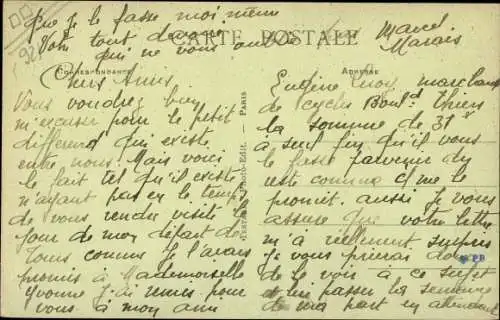 que je le fasse moi même
Votre tout dévoué
qui ne vous oublie
Marcel
Marais
CARTE POSTALE
CORRESPONDANCE
ADRESSE
92
Chers Amis
Vous voudrez bien
m'excuser pour le petit
différend qui existe
entre nous. Mais voici
le fait tel qu'il existe
n'ayant pas eu le temps
de vous rendre visite le
jour de mon départ de
Tours comme je l'avais
promis à Mademoiselle
Yvonne j'ai remis pour
vous à mon ami
PARIS
Eugène marchand
de cycles Boul.d Thiers
la somme de 31
a seul fin qu'il vous
le fasse parvenir du
reste comme il me le
promit. aussi je vous
assure que votre lettre
m'a réellement surpris
je vous prierai donc
de le voir à ce sujet
et lui passer la semonce
de ma part en attendant
PB